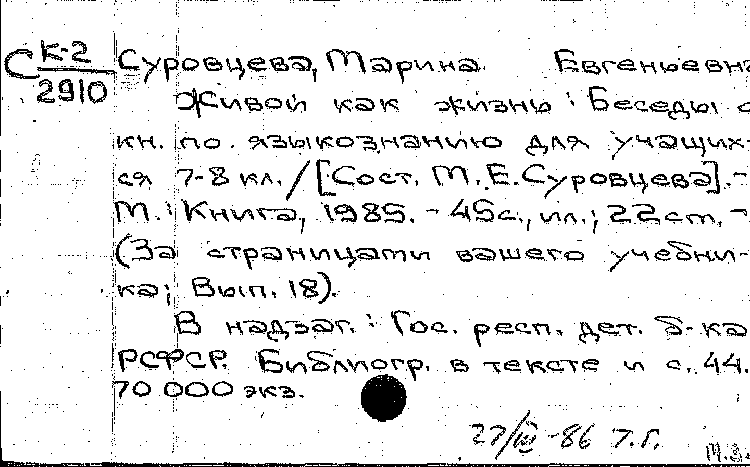 С К-2 Суровцева, Марина Евгеньевна
2910
Живой как жизнь : Беседы о
кн. по языкознанию для учащих-
ся 7-8 кл. / [Сост. М.Е.Суровцева].-
М.: Книга, 1985. - 45с., ил.; 22см.-
(За страницами вашего учебни-
ка; Вып. 18).
В надзаг.: Гос. респ. дет. б-ка
РСФСР. Библиогр. в тексте и с. 44.
70 000 экз.
27/III -86 Т.Г.